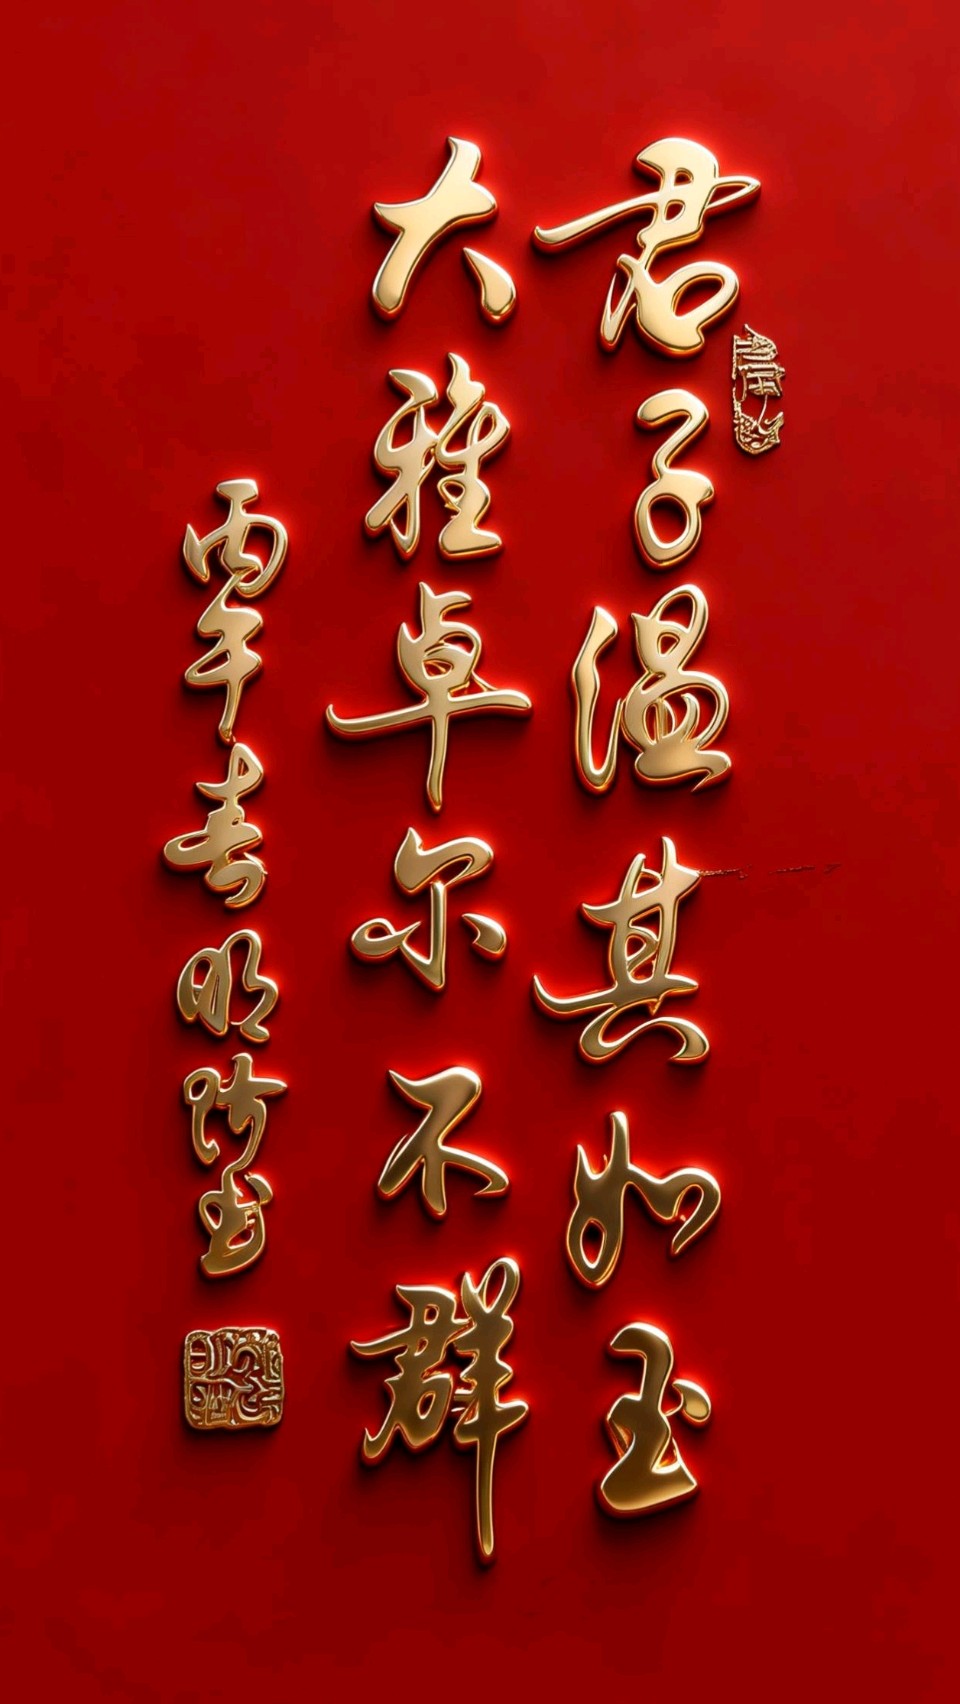 君子温其如玉
大雅卓尔不群
丙午春明阶书